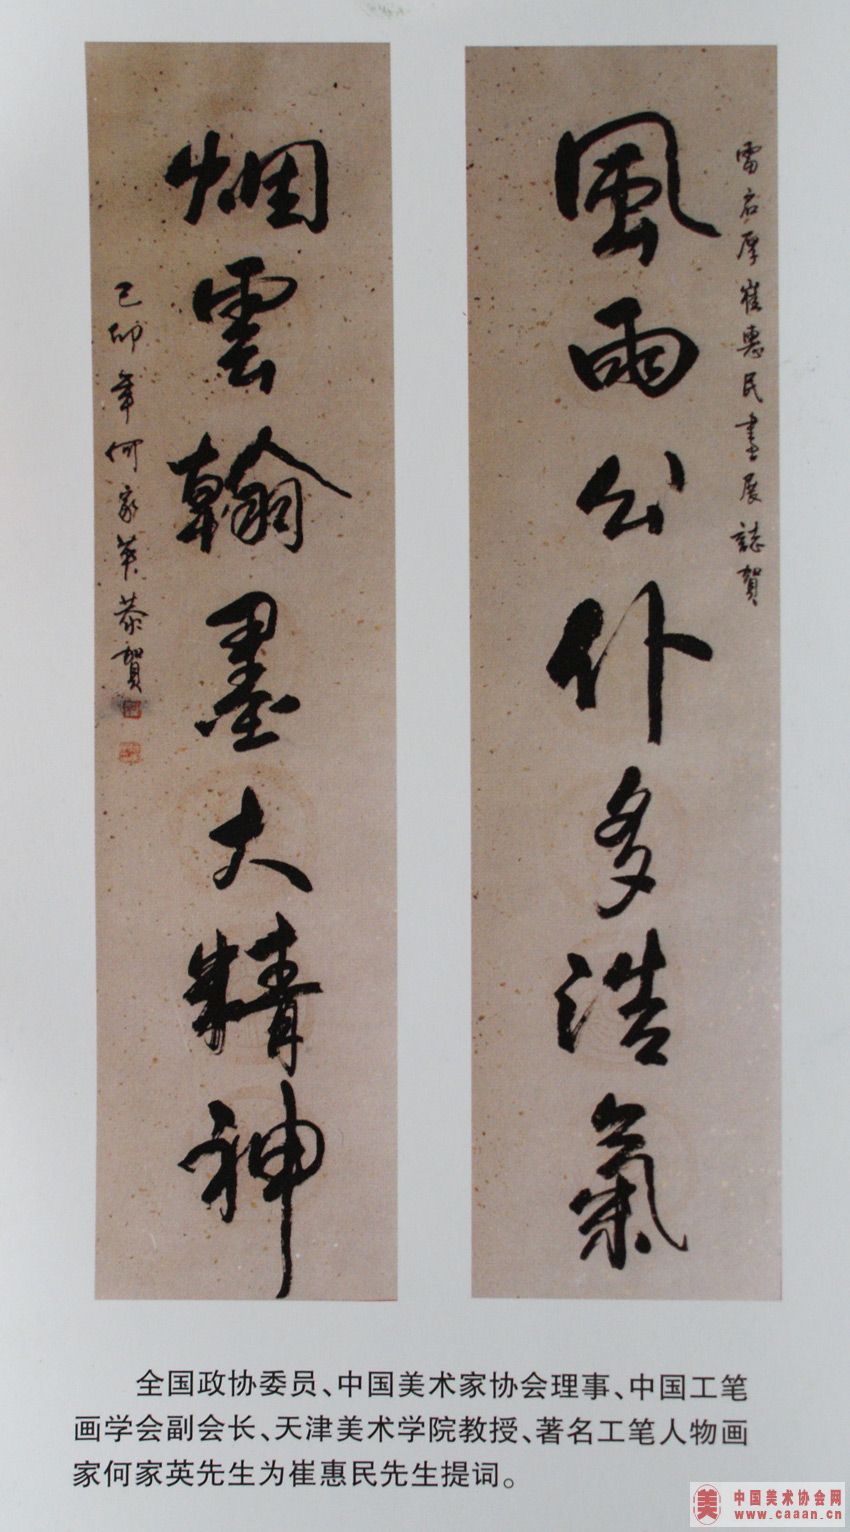 風雨公仆多浩氣
烟雲翰墨大精神
崔惠民書展誌賀
己卯年何家英恭賀
全国政协委员、中国美术家协会理事、中国工笔
画学会副会长、天津美术学院教授、著名工笔人物画
家何家英先生为崔惠民先生提词。
美
中国美术协会网
www.caaan.cn